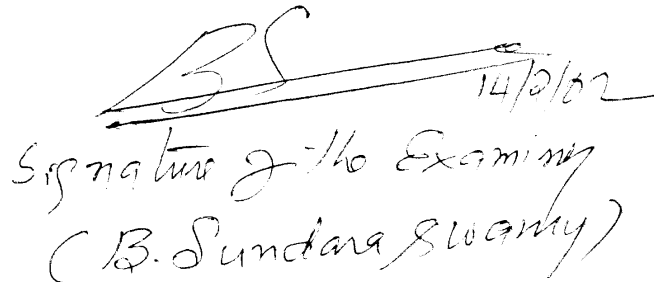 BS
14/2/02
Signature of the Examiner
(B. Sundara Swamy)